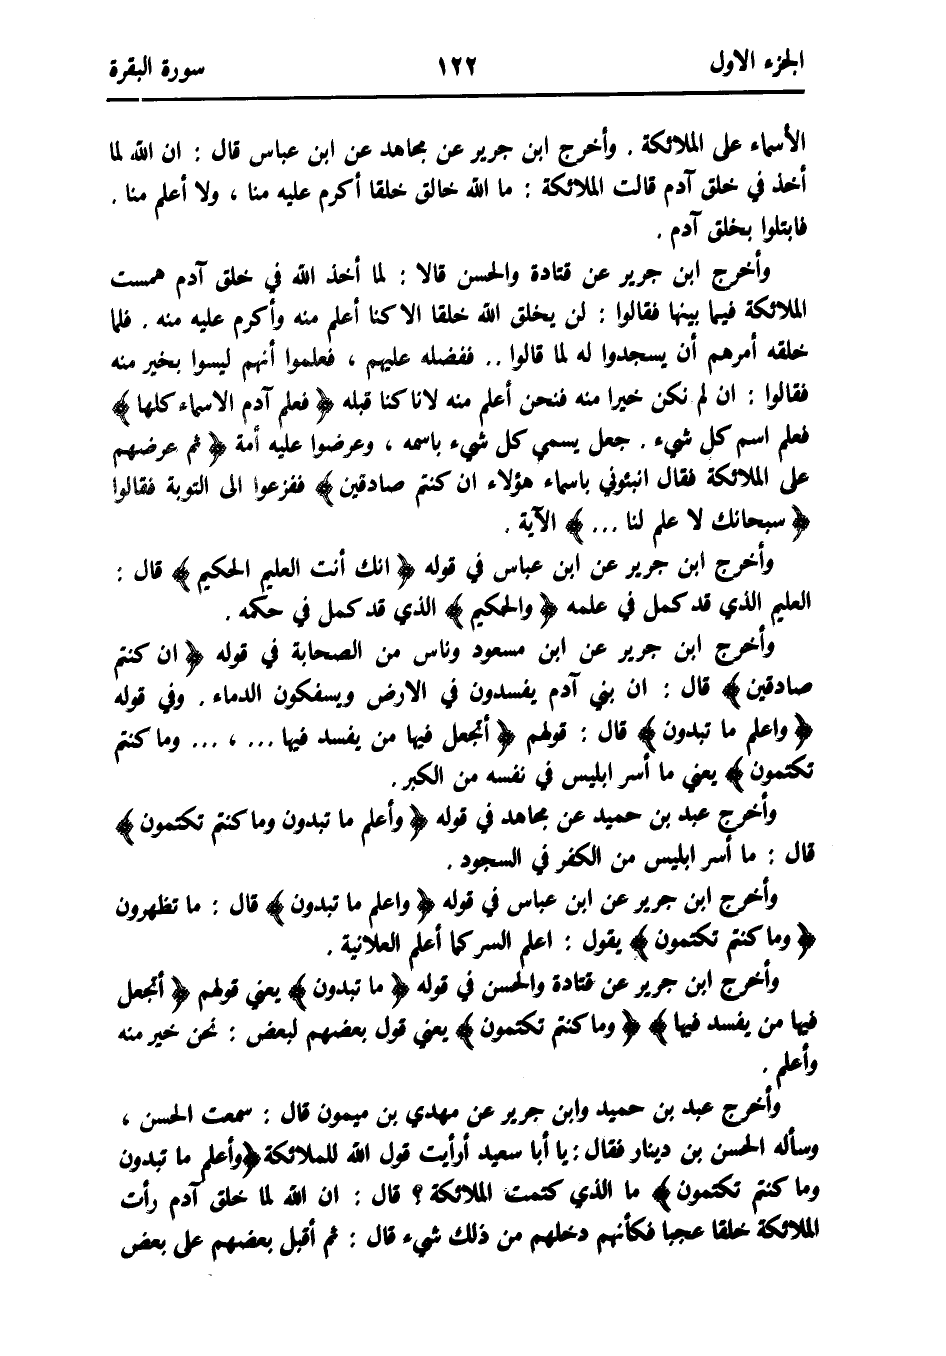 الجزء الاول ١٢٢ سورة البقرة
الأسماء على الملائكة . وأخرج ابن جرير عن مجاهد عن ابن عباس قال : ان الله لما
أخذ في خلق آدم قالت الملائكة : ما الله خالق خلقا أكرم عليه منا ، ولا أعلم منا .
فابتلوا بخلق آدم .
وأخرج ابن جرير عن قتادة والحسن قالا : لما أخذ الله في خلق آدم همست
الملائكة فيما بينها فقالوا : لن يخلق الله خلقا الا كنا أعلم منه وأكرم عليه منه . فلما
خلقه أمرهم أن يسجدوا له لما قالوا .. ففضله عليهم ، فعلموا أنهم ليسوا بخير منه
فقالوا : ان لم نكن خيرا منه فنحن أعلم منه لانا كنا قبله ﴿ فعلم آدم الاسماء كلها ﴾
فعلم اسم كل شيء . جعل يسمي كل شيء باسمه ، وعرضوا عليه أمة ﴿ ثم عرضهم
على الملائكة فقال انبئوني باسماء هؤلاء ان كنتم صادقين ﴾ ففزعوا الى التوبة فقالوا
﴿ سبحانك لا علم لنا ... ﴾ الآية .
وأخرج ابن جرير عن ابن عباس في قوله ﴿ انك أنت العليم الحكيم ﴾ قال :
العليم الذي قد كمل في علمه ﴿ والحكيم ﴾ الذي قد كمل في حكمه .
وأخرج ابن جرير عن ابن مسعود وناس من الصحابة في قوله ﴿ ان كنتم
صادقين ﴾ قال : ان بني آدم يفسدون في الارض ويسفكون الدماء . وفي قوله
﴿ واعلم ما تبدون ﴾ قال : قولهم ﴿ أتجعل فيها من يفسد فيها ... ، ... وما كنتم
تكتمون ﴾ يعني ما أسر ابليس في نفسه من الكبر .
وأخرج عبد بن حميد عن مجاهد في قوله ﴿ وأعلم ما تبدون وما كنتم تكتمون ﴾
قال : ما أسر ابليس من الكفر في السجود .
وأخرج ابن جرير عن ابن عباس في قوله ﴿ واعلم ما تبدون ﴾ قال : ما تظهرون
﴿ وما كنتم تكتمون ﴾ يقول : اعلم السر كما أعلم العلانية .
وأخرج ابن جرير عن قتادة والحسن في قوله ﴿ ما تبدون ﴾ يعني قولهم ﴿ أتجعل
فيها من يفسد فيها ﴾ ﴿ وما كنتم تكتمون ﴾ يعني قول بعضهم لبعض : نحن خير منه
وأعلم .
وأخرج عبد بن حميد وابن جرير عن مهدي بن ميمون قال : سمعت الحسن ،
وسأله الحسن بن دينار فقال : يا أبا سعيد أرأيت قول الله للملائكة ﴿ وأعلم ما تبدون
وما كنتم تكتمون ﴾ ما الذي كتمت الملائكة ؟ قال : ان الله لما خلق آدم رأت
الملائكة خلقا عجبا فكأنهم دخلهم من ذلك شيء قال : ثم أقبل بعضهم على بعض